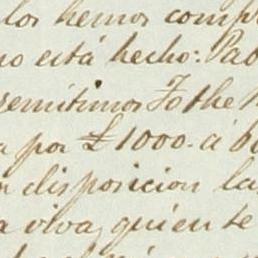 los hemos comp
no está hecho: Pao
remitimos To the
a por £1000. á 60
n disposicion la
a viva, quien te